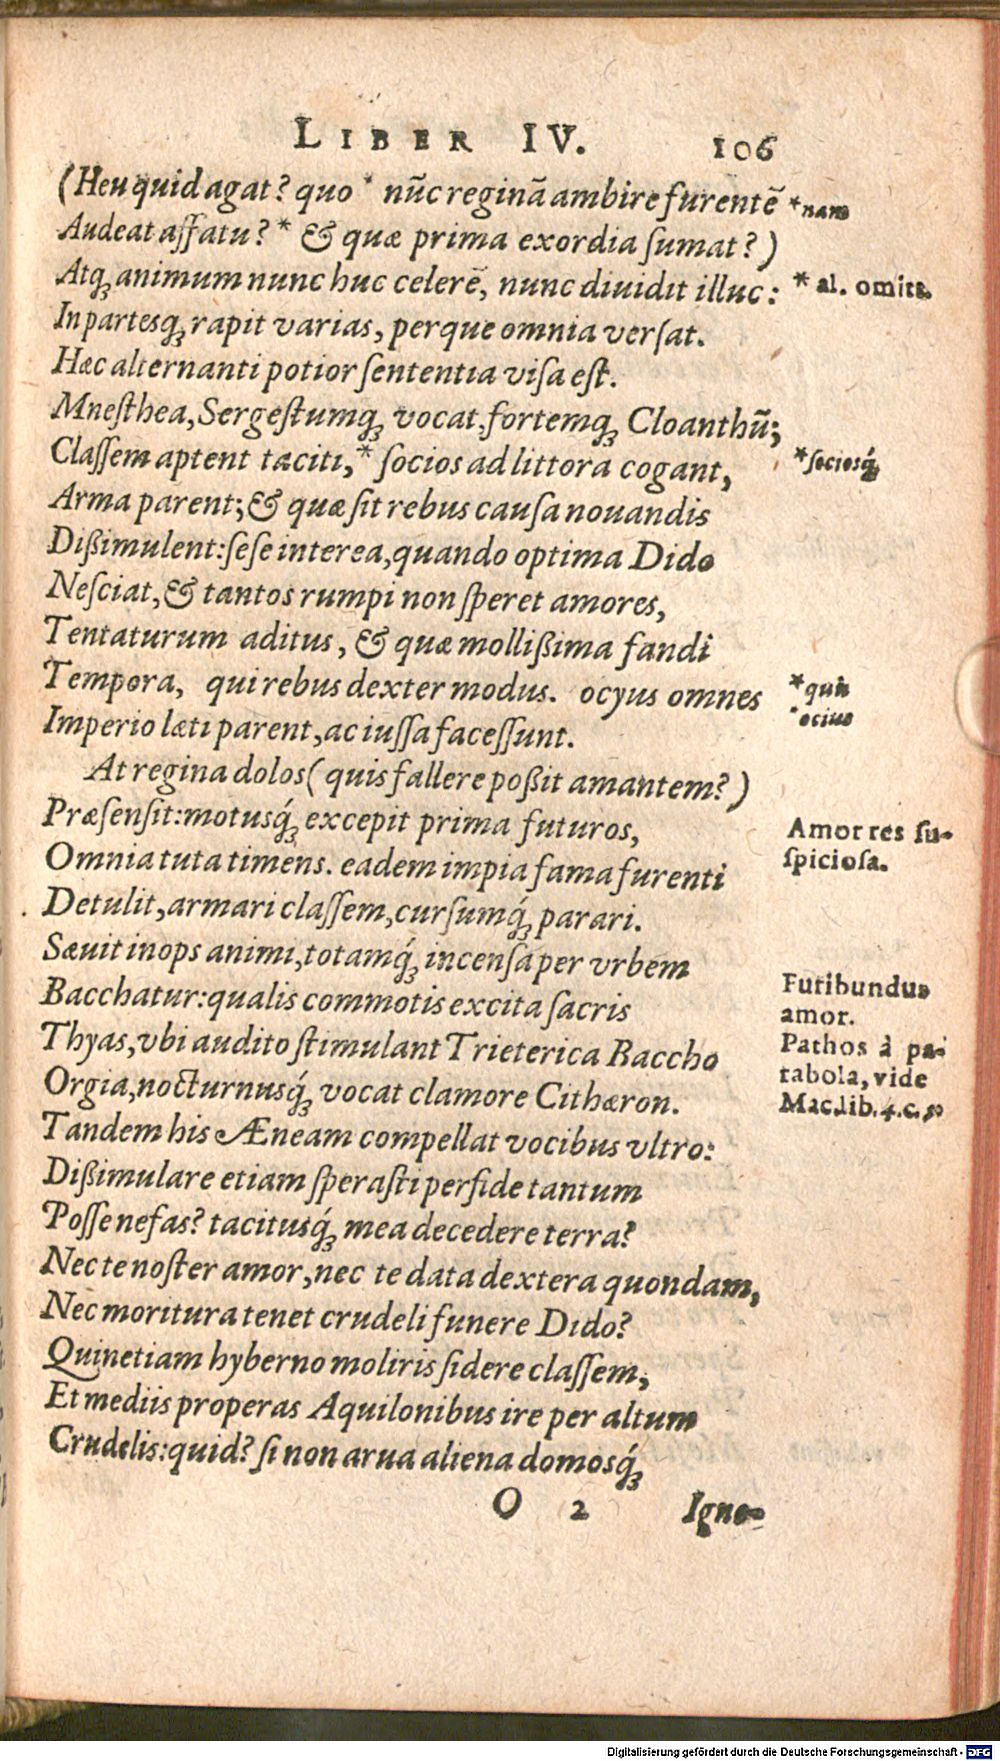 LIBER IV. 106
(Heu quid agat? quo * nũc reginã ambire furentẽ *nam
Audeat affatu? * & quæ prima exordia sumat?)
Atq; animum nunc huc celerẽ, nunc diuidit illuc: * al. omitt.
In partesq; rapit varias, perque omnia versat.
Hæc alternanti potior sententia visa est.
Mnesthea, Sergestumq; vocat, fortemq; Cloanthũ;
Classem aptent taciti, * socios ad littora cogant, *sociosq́;
Arma parent; & quæ sit rebus causa nouandis
Dißimulent: sese interea, quando optima Dido
Nesciat, & tantos rumpi non speret amores,
Tentaturum aditus, & quæ mollißima fandi
Tempora, qui rebus dexter modus. ocyus omnes *quis
Imperio læti parent, ac iussa facessunt. *ocius
At regina dolos (quis fallere poßit amantem?)
Præsensit: motusq́; excepit prima futuros, Amor res su-
Omnia tuta timens. eadem impia fama furenti spiciosa.
Detulit, armari classem, cursumq́; parari.
Sæuit inops animi, totamq́; incensa per vrbem
Bacchatur: qualis commotis excita sacris Furibundus
amor.
Thyas, vbi audito stimulant Trieterica Baccho Pathos à pa-
Orgia, nocturnusq́; vocat clamore Cithæron. rabola, vide
Mac. lib. 4. c. 5.
Tandem his Æneam compellat vocibus vltro:
Dißimulare etiam sperasti perfide tantum
Posse nefas? tacitusq́; mea decedere terra?
Nec te noster amor, nec te data dextera quondam,
Nec moritura tenet crudeli funere Dido?
Quinetiam hyberno moliris sidere classem,
Et mediis properas Aquilonibus ire per altum
Crudelis: quid? si non arua aliena domosq́;
O 2 Igno-
Digitalisierung gefördert durch die Deutsche Forschungsgemeinschaft - DFG